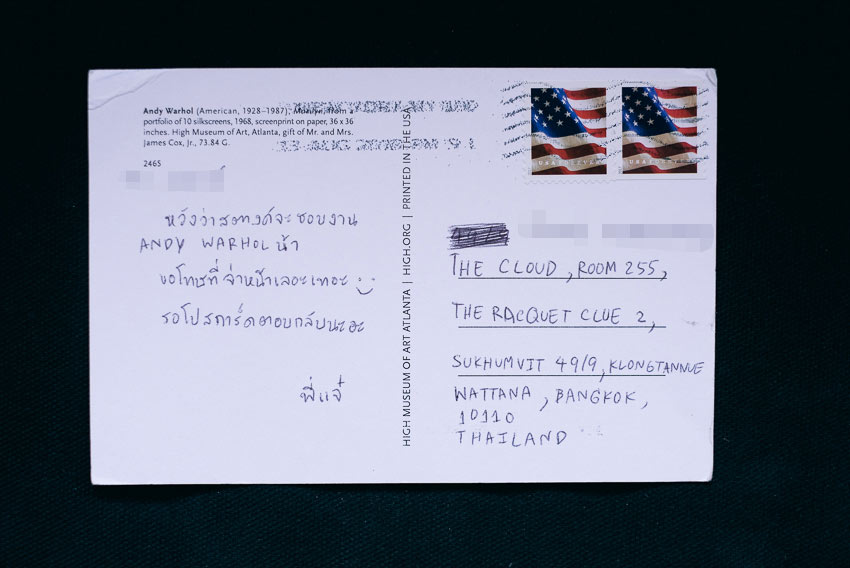 Andy Warhol (American, 1928–1987), Marilyn, from a
portfolio of 10 silkscreens, 1968, screenprint on paper, 36 x 36
inches. High Museum of Art, Atlanta, gift of Mr. and Mrs.
James Cox, Jr., 73.84 G.
2465
หวังว่าสตางค์จะชอบงาน
ANDY WARHOL น้า
ขอโทษที่จ่าหน้าเลอะเทอะ
รอโปสการ์ดตอบกลับนะฮะ
พี่แจ๋
HIGH MUSEUM OF ART ATLANTA | HIGH.ORG | PRINTED IN THE USA
THE CLOUD, ROOM 255,
THE RACQUET CLUE 2,
SUKHUMVIT 49/9, KLONGTANNUE
WATTANA, BANGKOK,
10110
THAILAND